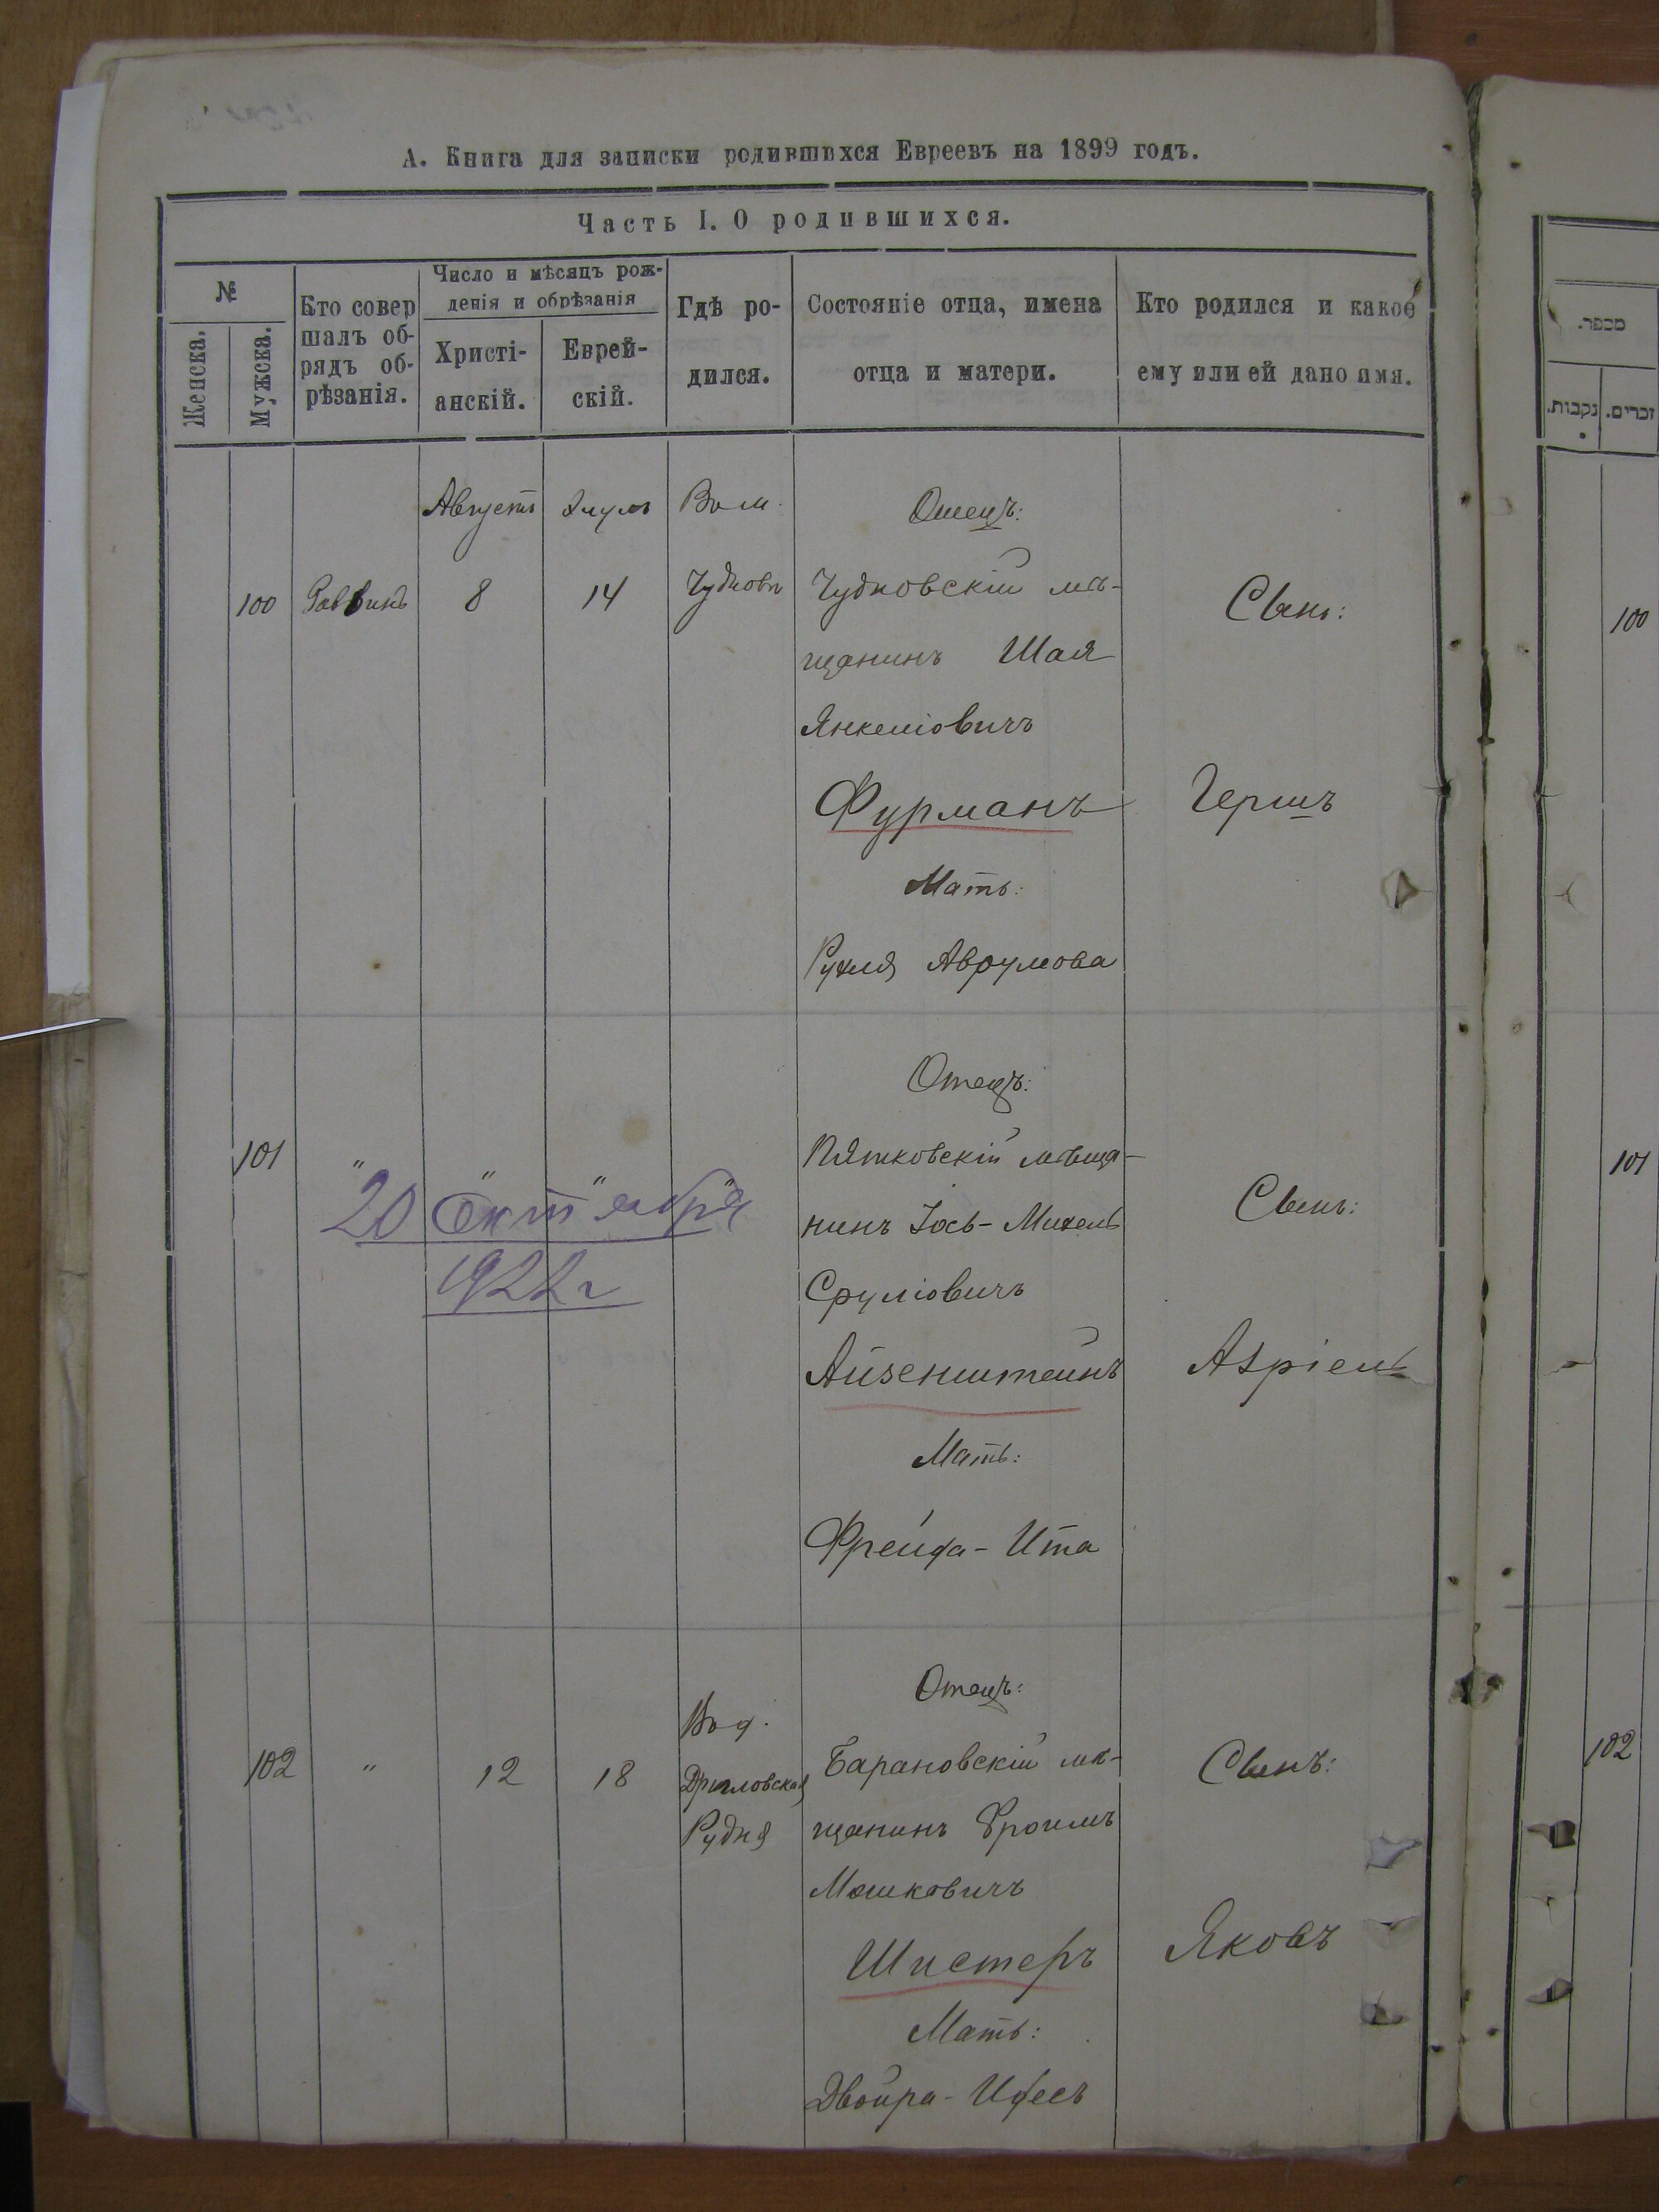 А. Книга для записки родившихся Евреевъ на 1899 годъ.
Часть I. О родившихся.
№
Женска.
Мужска.
Кто совер
шалъ об-
рядъ об-
рѣзанія.
Число и мѣсяцъ рож-
денія и обрѣзанія
Христі-
анскій.
Еврей-
скій.
Гдѣ ро-
дился.
Состояніе отца, имена
отца и матери.
Кто родился и какое
ему или ей дано имя.
Августъ Элулъ Въ м.
100 Раввинъ 8 14 Чудновѣ
Отецъ:
Чудновскій мѣ-
щанинъ Шая
Янкеліовичъ
Фурманъ
Мать:
Рухля Аврумова
Сынъ:
Гершъ
101 " " " "
20 Октября
1922 г
Отецъ:
Пятковскій мѣща-
нинъ Іось-Михель
Сруліовичъ
Айзенштейнъ
Мать:
Фрейда-Ита
Сынъ:
Азріель
102 " 12 18
Въ д.
Дриловская
Рудня
Отецъ:
Барановскій мѣ-
щанинъ Фроимъ
Мошковичъ
Шистеръ
Мать:
Двойра-
Сынъ:
Яковъ
מספר.
זכרים. נקבות.
100
101
102